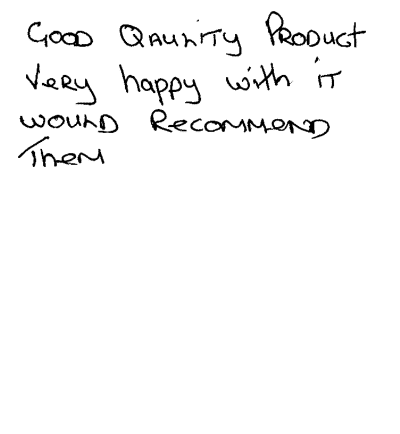 Good Qaulity Product
Very happy with it
would Recommend
Them